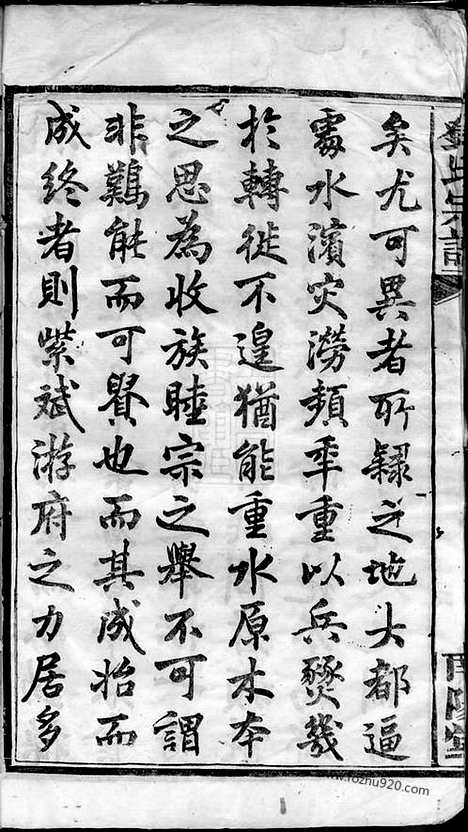 矣尤可異者所隸之地大都逼
處水濱灾澇頻秊重以兵燹幾
於轉徙不遑猶能重水原木本
之思為收族睦宗之舉不可謂
非難能而可貴也而其成始而
成終者則紫斌游府之力居多
www.fozhu920.com